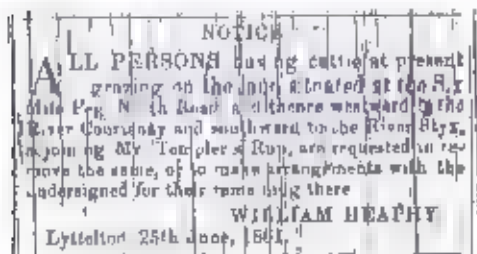 NOTICE
ALL PERSONS having cattle at present
grazing on the land situated at the Six
Mile Peg, North Road and thence westward to the
River Courtenay and southward to the River Styx,
adjoining Mr Templer's Run, are requested to re-
move the same, or to make arrangements with the
undersigned for their remaining there
WILLIAM HEAPHY
Lyttelton 25th June, 1861.